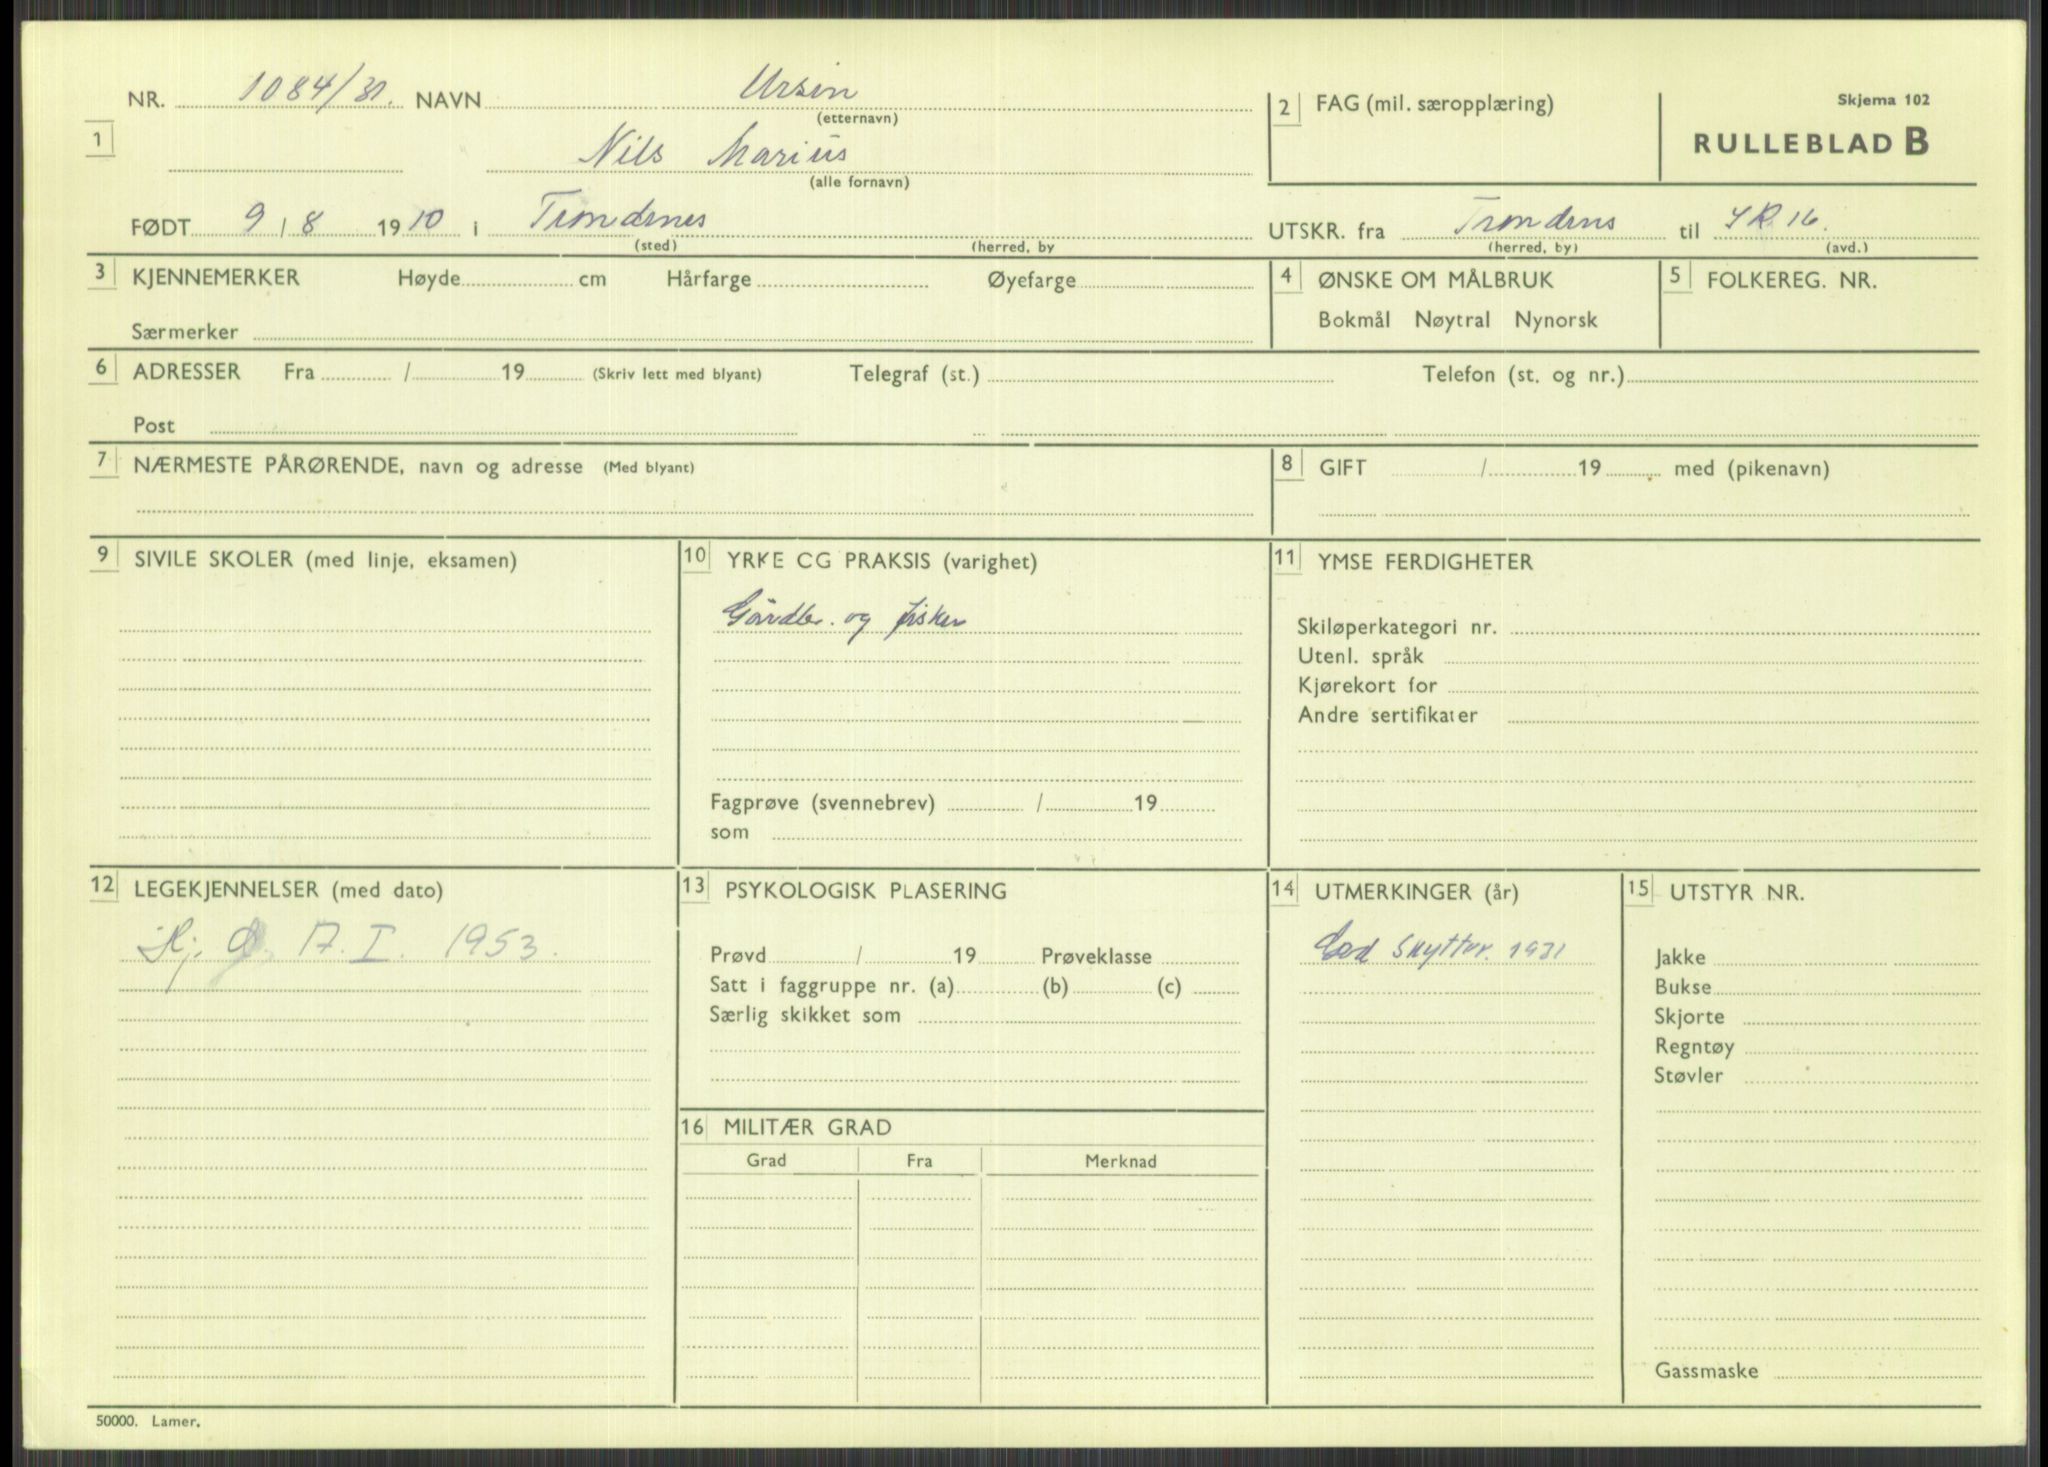 Skjema 102
RULLEBLAD B
NR. 1084/31. NAVN Ursin
(etternavn)
1
Nils Marius
(alle fornavn)
2 FAG (mil. særopplæring)
FØDT 9 / 8 1910 i Trondenes
(sted) (herred, by
UTSKR. fra Trondenes til IR 16.
(herred, by) (avd.)
3 KJENNEMERKER Høyde cm Hårfarge Øyefarge
Særmerker
4 ØNSKE OM MÅLBRUK
Bokmål Nøytral Nynorsk
5 FOLKEREG. NR.
6 ADRESSER Fra / 19 (Skriv lett med blyant) Telegraf (st.) Telefon (st. og nr.)
Post
7 NÆRMESTE PÅRØRENDE, navn og adresse (Med blyant)
8 GIFT / 19 med (pikenavn)
9 SIVILE SKOLER (med linje, eksamen)
10 YRKE CG PRAKSIS (varighet)
og fisker
Fagprøve (svennebrev) / 19
som
11 YMSE FERDIGHETER
Skiløperkategori nr.
Utenl. språk
Kjørekort for
Andre sertifikater
12 LEGEKJENNELSER (med dato)
Hj. A. I. 1953.
13 PSYKOLOGISK PLASERING
Prøvd / 19 Prøveklasse
Satt i faggruppe nr. (a) (b) (c)
Særlig skikket som
14 UTMERKINGER (år)
God Skytter. 1931
15 UTSTYR NR.
Jakke
Bukse
Skjorte
Regntøy
Støvler
Gassmaske
16 MILITÆR GRAD
Grad Fra Merknad
50000. Lamer.